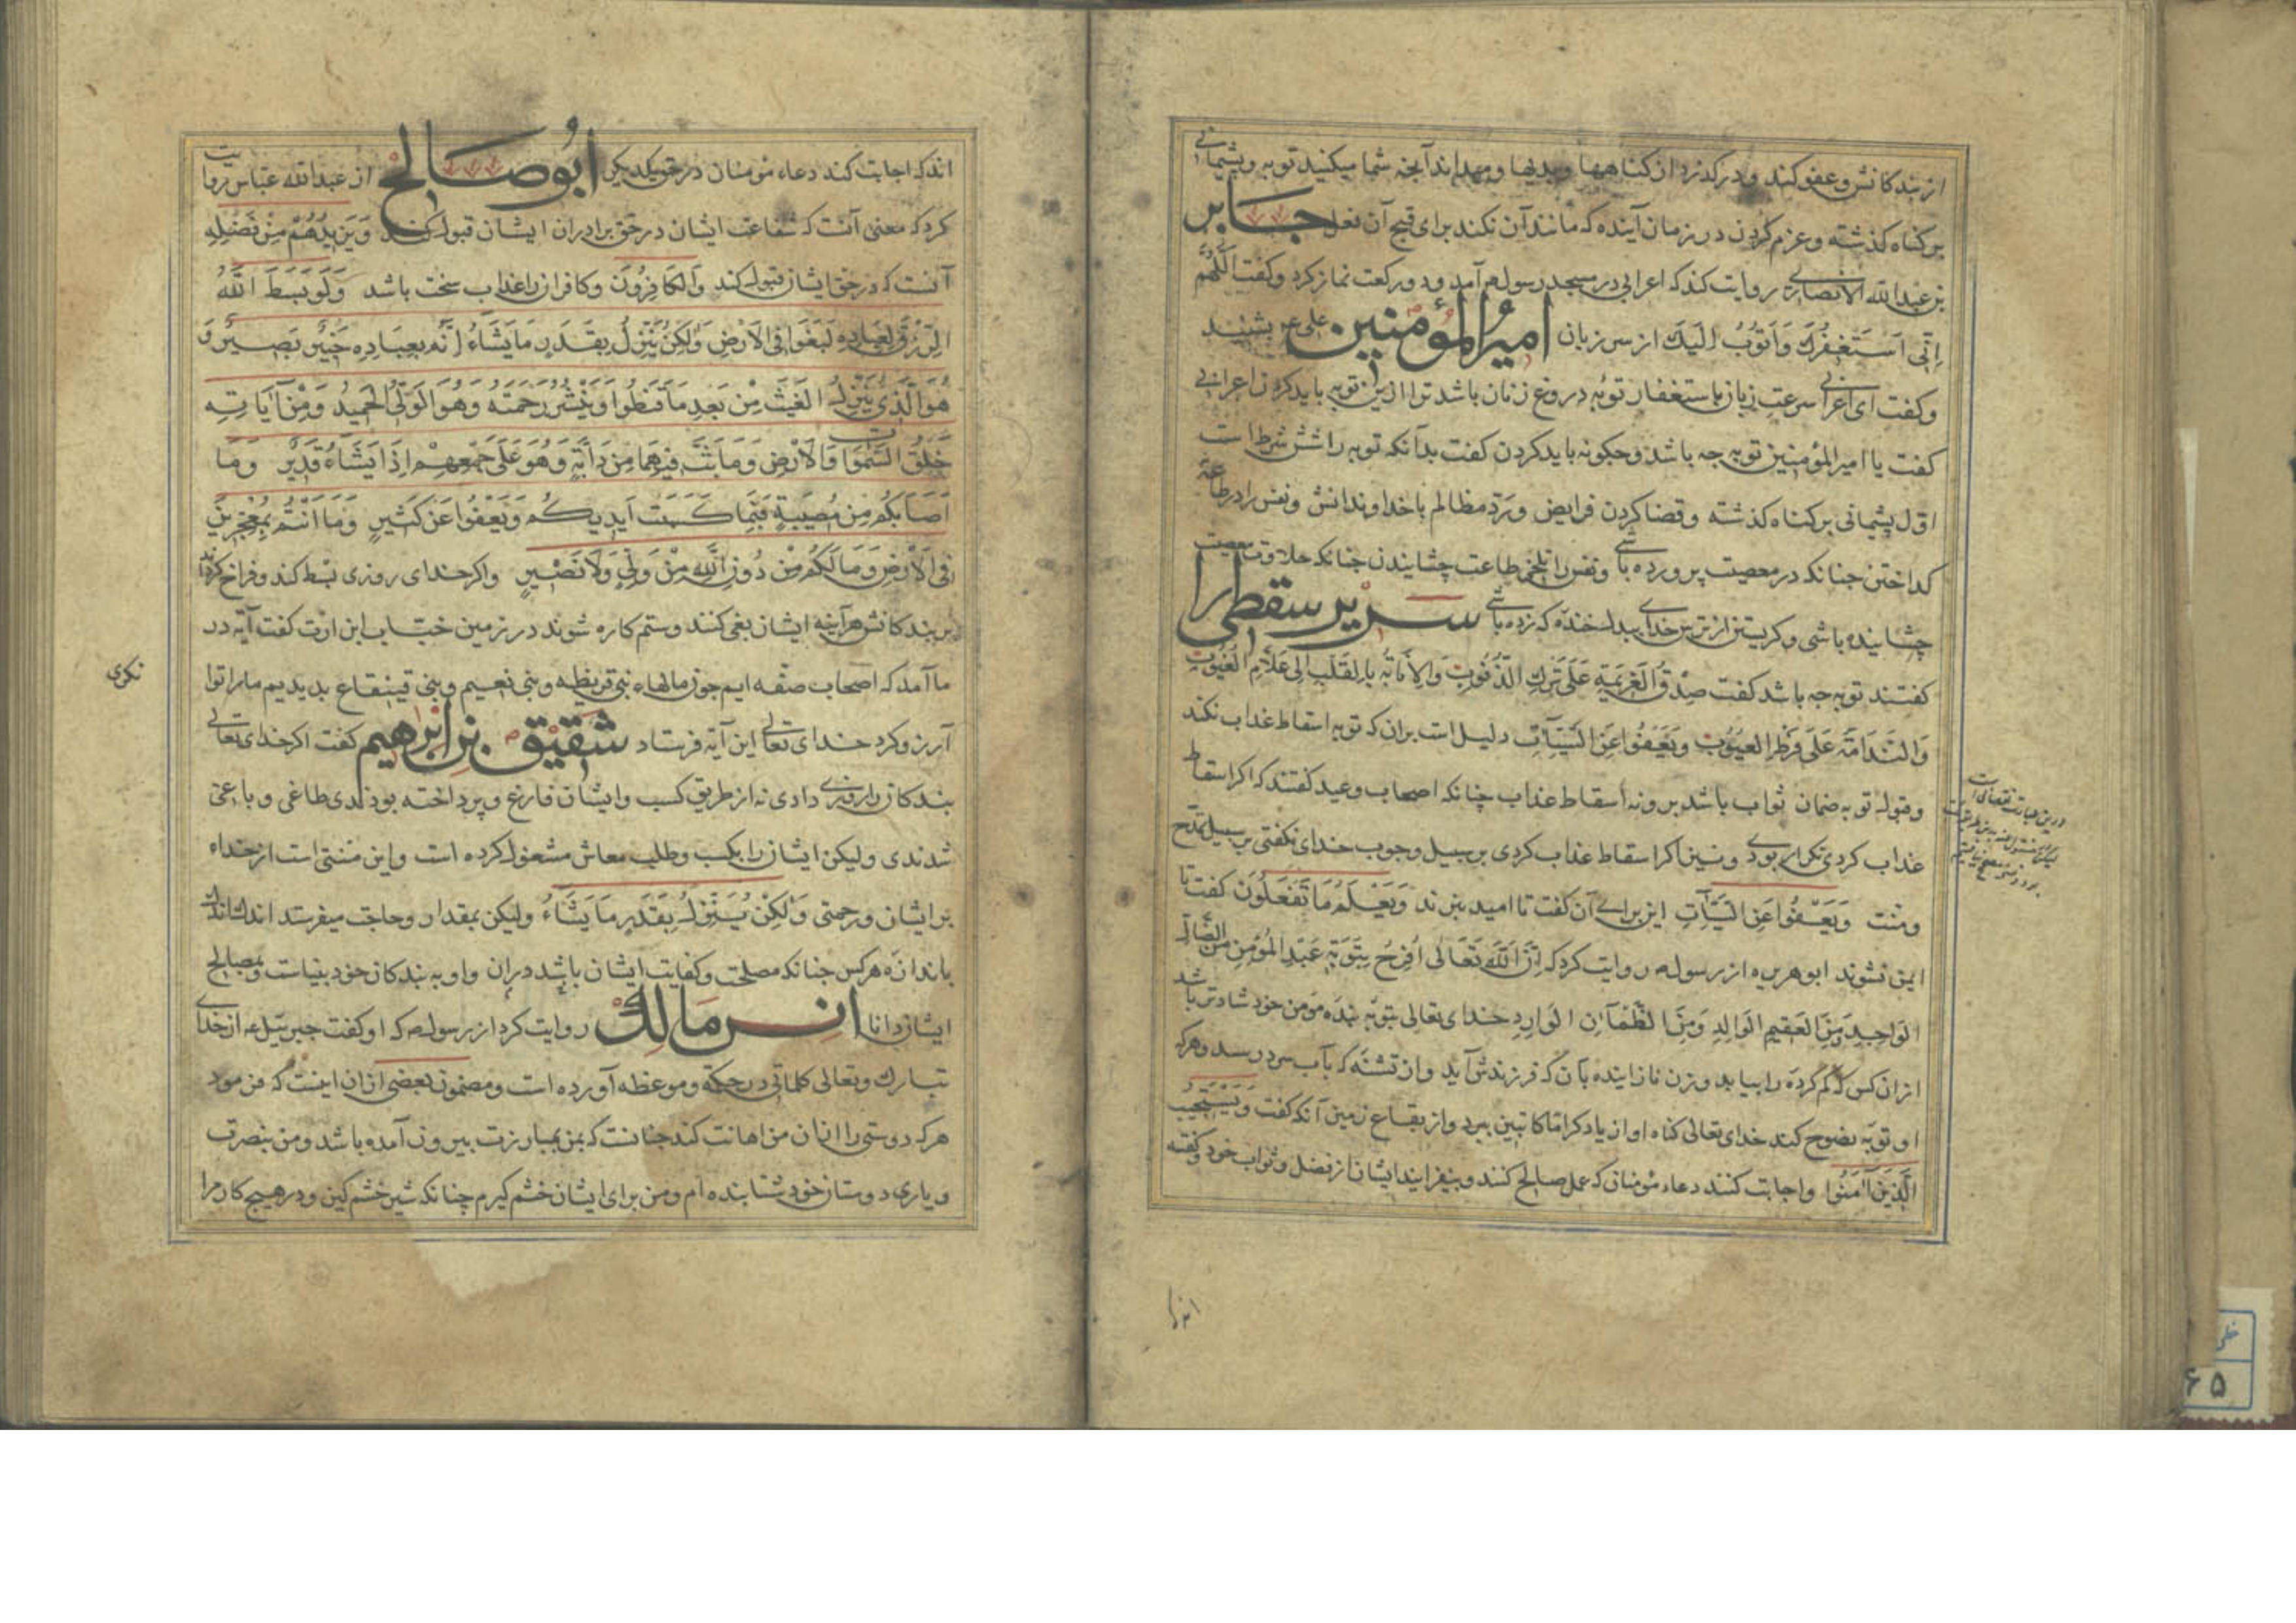 از بندکانش و عفو کند و درکذرد از کناهها و بدیها و میداند آنچه شما میکنید توبه و پشیمانی
بر کناه کذشته و عزم کردن در زمان آینده که مانند آن نکند برای قبح آن فعل جابر
بن عبدالله الانصاری روایت کند که اعرابی در مسجد رسول آمد و دو رکعت نماز کرد و کفت اللَّهُمَّ
اِنّی اَسْتَغْفِرُكَ وَاَتُوبُ اِلَیْكَ از سر زبان امیرُ المؤمنین علی بشنید
و کفت ای اعرابی سرعت زبان باستغفار توبه دروغ زنان باشد ترا ازین توبه باید کرد اعرابی
کفت یا امیر المؤمنین توبه چه باشد و چکونه باید کردن کفت بدانکه توبه را شش شرط است
اول پشیمانی بر کناه کذشته و قضا کردن فرایض و رد مظالم با خداوندانش و نفس را در طاعة
کداختن چنانکه در معصیت پرورده باشی و نفس را تلخی طاعت چشانیدن چنانکه حلاوت معصیت
چشانیده باشی و کریستن از ترس خدای بدل خنده که زده باشی سری سقطی را
کفتند توبه چه باشد کفت صِدْقُ الْعَزیمَةِ عَلَی تَرْكِ الذُّنُوبِ وَالاِنَابَةُ بِالْقَلْبِ اِلی عَلَّامِ الْغُیُوبِ
وَالنَّدَامَةُ عَلَی فَرْطِ العُیُوبِ وَیَعْفُوا عَنِ السَّیِّئَاتِ دلیل است بران که توبه اسقاط عذاب نکند
و قبول توبه ضمان ثواب باشد برو نه اسقاط عذاب چنانکه اصحاب وعید کفتند که اکر اسقاط
عذاب کردی تکرار بودی و نیز اکر اسقاط عذاب کردی بر سبیل وجوب خدای نکفتی بر سبیل تمدح
و منت وَیَعْفُوا عَنِ السَّیِّئَاتِ این برای آن کفت تا امید برند وَیَعْلَمُ مَا تَفْعَلُونَ کفت تا
ایمن نشوند ابوهریره از رسول روایت کرد که اِنَّ اللّٰهَ تَعَالی اَفْرَحُ بِتَوْبَةِ عَبْدِهِ المُؤْمِنِ مِنَ الضَّالِّ
الوَاجِدِ وَمِنَ العَقِیمِ الوَالِدِ وَمِنَ الظَّمْآنِ الوَارِدِ خدای تعالی بتوبه بنده مومن خود شادتر باشد
از ان کس که کم کرده را بیابد و زن نازاینده بآن که فرزندش آید و از تشنه که بآب سرد رسد و هر که
او توبه نصوح کند خدای تعالی کناه او از یاد کراما کاتبین ببرد و از بقاع زمین آنکه کفت وَیَسْتَجیبُ
الَّذینَ آمَنُوا و اجابت کنند دعاء مؤمنان که عمل صالح کنند و بیفزاید ایشان از فضل و ثواب خود و کفته
اندکه
اندکه اجابت کند دعاء مؤمنان در حق یکدیکر ابُو صَالح از عبدالله عباس روایت
کرد که معنی آنست که شفاعت ایشان در حق برادران ایشان قبول کند وَیَزیدُهُمْ مِنْ فَضْلِهِ
آنست که در حق ایشان قبول کند وَالکَافِرُونَ و کافران را عذاب سخت باشد وَلَوْ بَسَطَ اللّٰهُ
الرِّزْقَ لِعِبَادِهِ لَبَغَوْا فِی الاَرْضِ وَلٰکِنْ یُنَزِّلُ بِقَدَرٍ مَا یَشَاءُ اِنَّهُ بِعِبَادِهِ خَبیرٌ بَصیرٌ وَ
هُوَ الَّذی یُنَزِّلُ الْغَیْثَ مِنْ بَعْدِ مَا قَنَطُوا وَیَنْشُرُ رَحْمَتَهُ وَهُوَ الْوَلِیُّ الْحَمیدُ وَمِنْ آیَاتِهِ
خَلْقُ السَّمٰوَاتِ وَالاَرْضِ وَمَا بَثَّ فیهِمَا مِنْ دَابَّةٍ وَهُوَ عَلَی جَمْعِهِمْ اِذَا یَشَاءُ قَدیرٌ وَمَا
اَصَابَکُمْ مِنْ مُصیبَةٍ فَبِمَا کَسَبَتْ اَیْدیکُمْ وَیَعْفُوا عَنْ کَثیرٍ وَمَا اَنْتُمْ بِمُعْجِزینَ
فِی الاَرْضِ وَمَا لَکُمْ مِنْ دُونِ اللّٰهِ مِنْ وَلِیٍّ وَلَا نَصیرٍ و اکر خدای روزی بسط کند و فراخ کرداند
بر بندکانش هرآینه ایشان بغی کنند و ستم کاره شوند در زمین خبّاب ابن ارت کفت آیه در
ما آمد که اصحاب صفه ایم چون مالهاء بنی قریظه و بنی نعیم و بنی قینقاع بدیدیم ما را توا
نکری
آرزو کرد خدای تعالی این آیه فرستاد شَقیق بن ابْرهیم کفت اکر خدای تعالی
بندکان را روزی دادی نه از طریق کسب و ایشان فارغ و پرداخته بودندی طاغی و باغی
شدندی ولیکن ایشان را بکسب و طلب معاش مشغول کرده است و این منتی است از خداء
بر ایشان و رحمتی وَلٰکِنْ یُنَزِّلُ بِقَدَرٍ مَا یَشَاءُ ولیکن بمقدار و حاجت میفرستد اندك اندك
باندازه هر کس چنانکه مصلحت و کفایت ایشان باشد دران و او به بندکان خود بیناست و بمصالح
ایشان دانا انس مَالِك روایت کرد از رسول که او کفت جبرئیل از خدای
تبارك و تعالی کلماتی در حکمة و موعظه آورده است و مضمون بعضی ازان اینست که فرمود
هر که دوستی را ازان من اهانت کند چنانست که بمن بمبارزت بیرون آمده باشد و من بنصرت
و یاری دوستان خود شتابنده ام و من برای ایشان خشم کیرم چنانکه شیر خشم کین و در هیچ کار مرا
خطی
۶۵